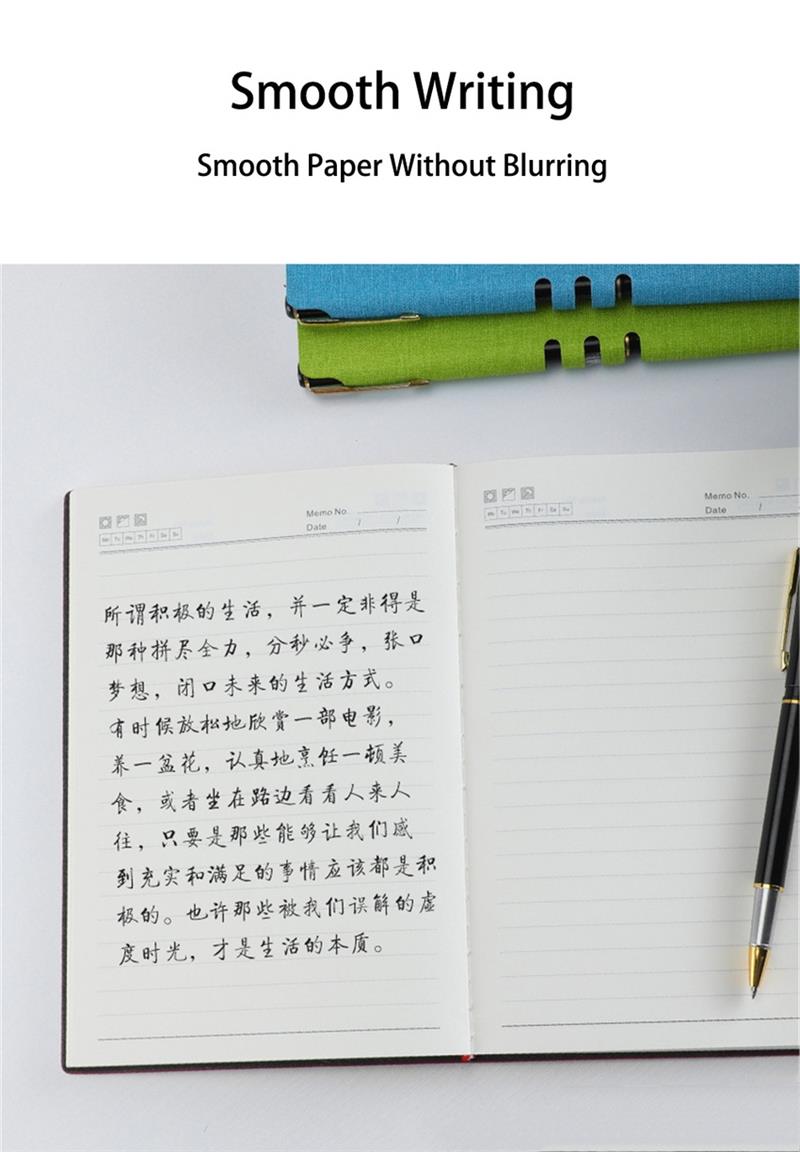 Smooth Writing
Smooth Paper Without Blurring
Memo No.
Date / /
Mo Tu We Th Fr Sa Su
所谓积极的生活，并一定非得是
那种拼尽全力，分秒必争，张口
梦想，闭口未来的生活方式。
有时候放松地欣赏一部电影，
养一盆花，认真地烹饪一顿美
食，或者坐在路边看看人来人
往，只要是那些能够让我们感
到充实和满足的事情应该都是积
极的。也许那些被我们误解的虚
度时光，才是生活的本质。
Memo No.
Date /
Mo Tu We Th Fr Sa Su